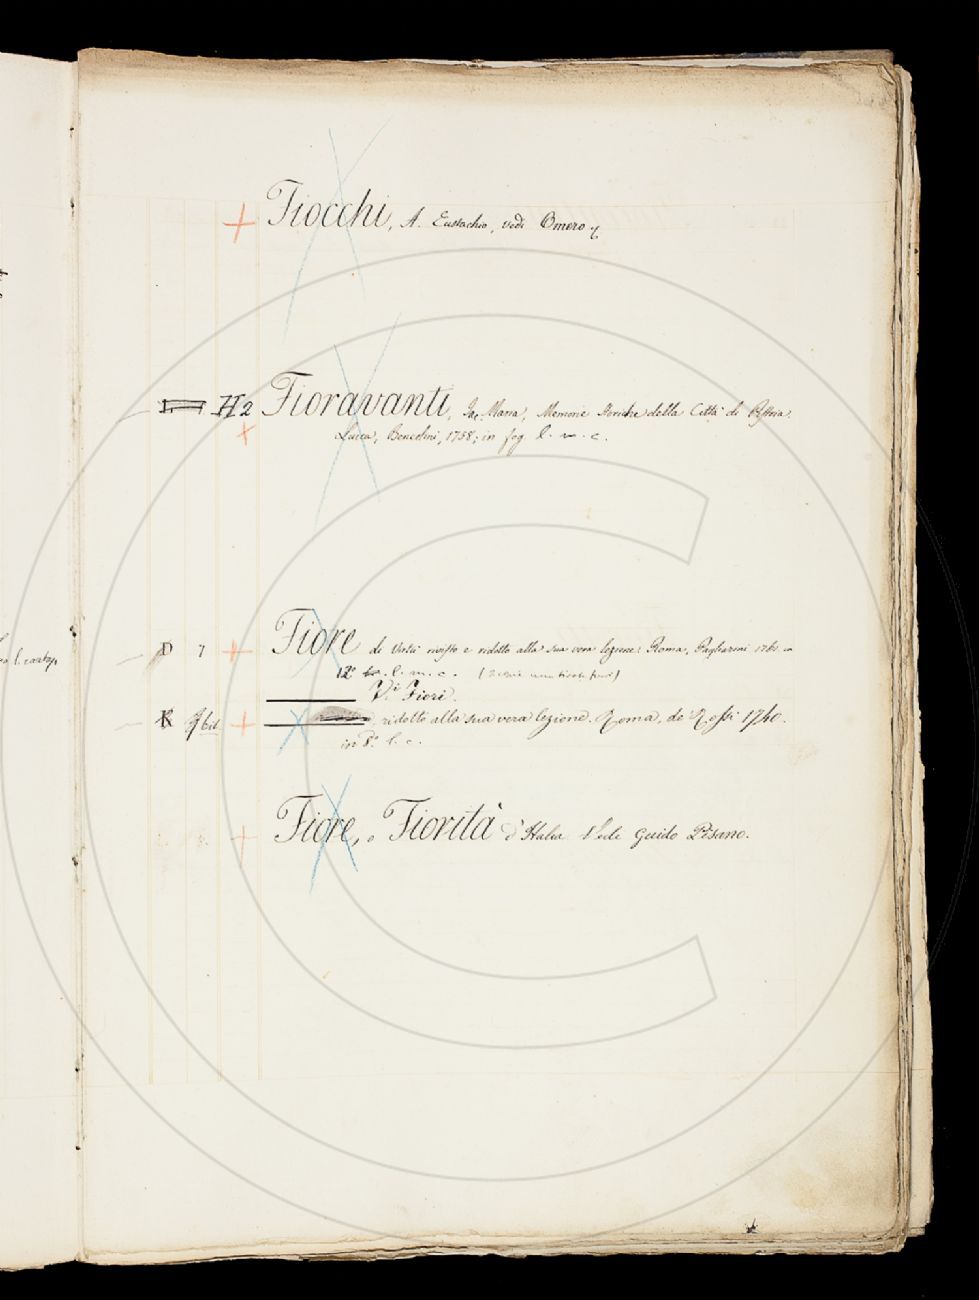 Fiocchi, A. Eustachio, vedi Omero
H 2 Fioravanti, Jac. Maria, Memorie storiche della Città di Pistoia.
Lucca, Benedini, 1758; in fog. l. m. c.
D 7 Fiore di Virtù rivisto e ridotto alla sua vera lezione: Roma, Pagliarini 1761. in
12° l. m. c.
V.di Fiori.
R 9 bis , ridotto alla sua vera lezione. Roma, de' Rossi 1740.
in 8.° l. c.
Fiore, o Fiorità d'Italia Vede Guido Pisano.